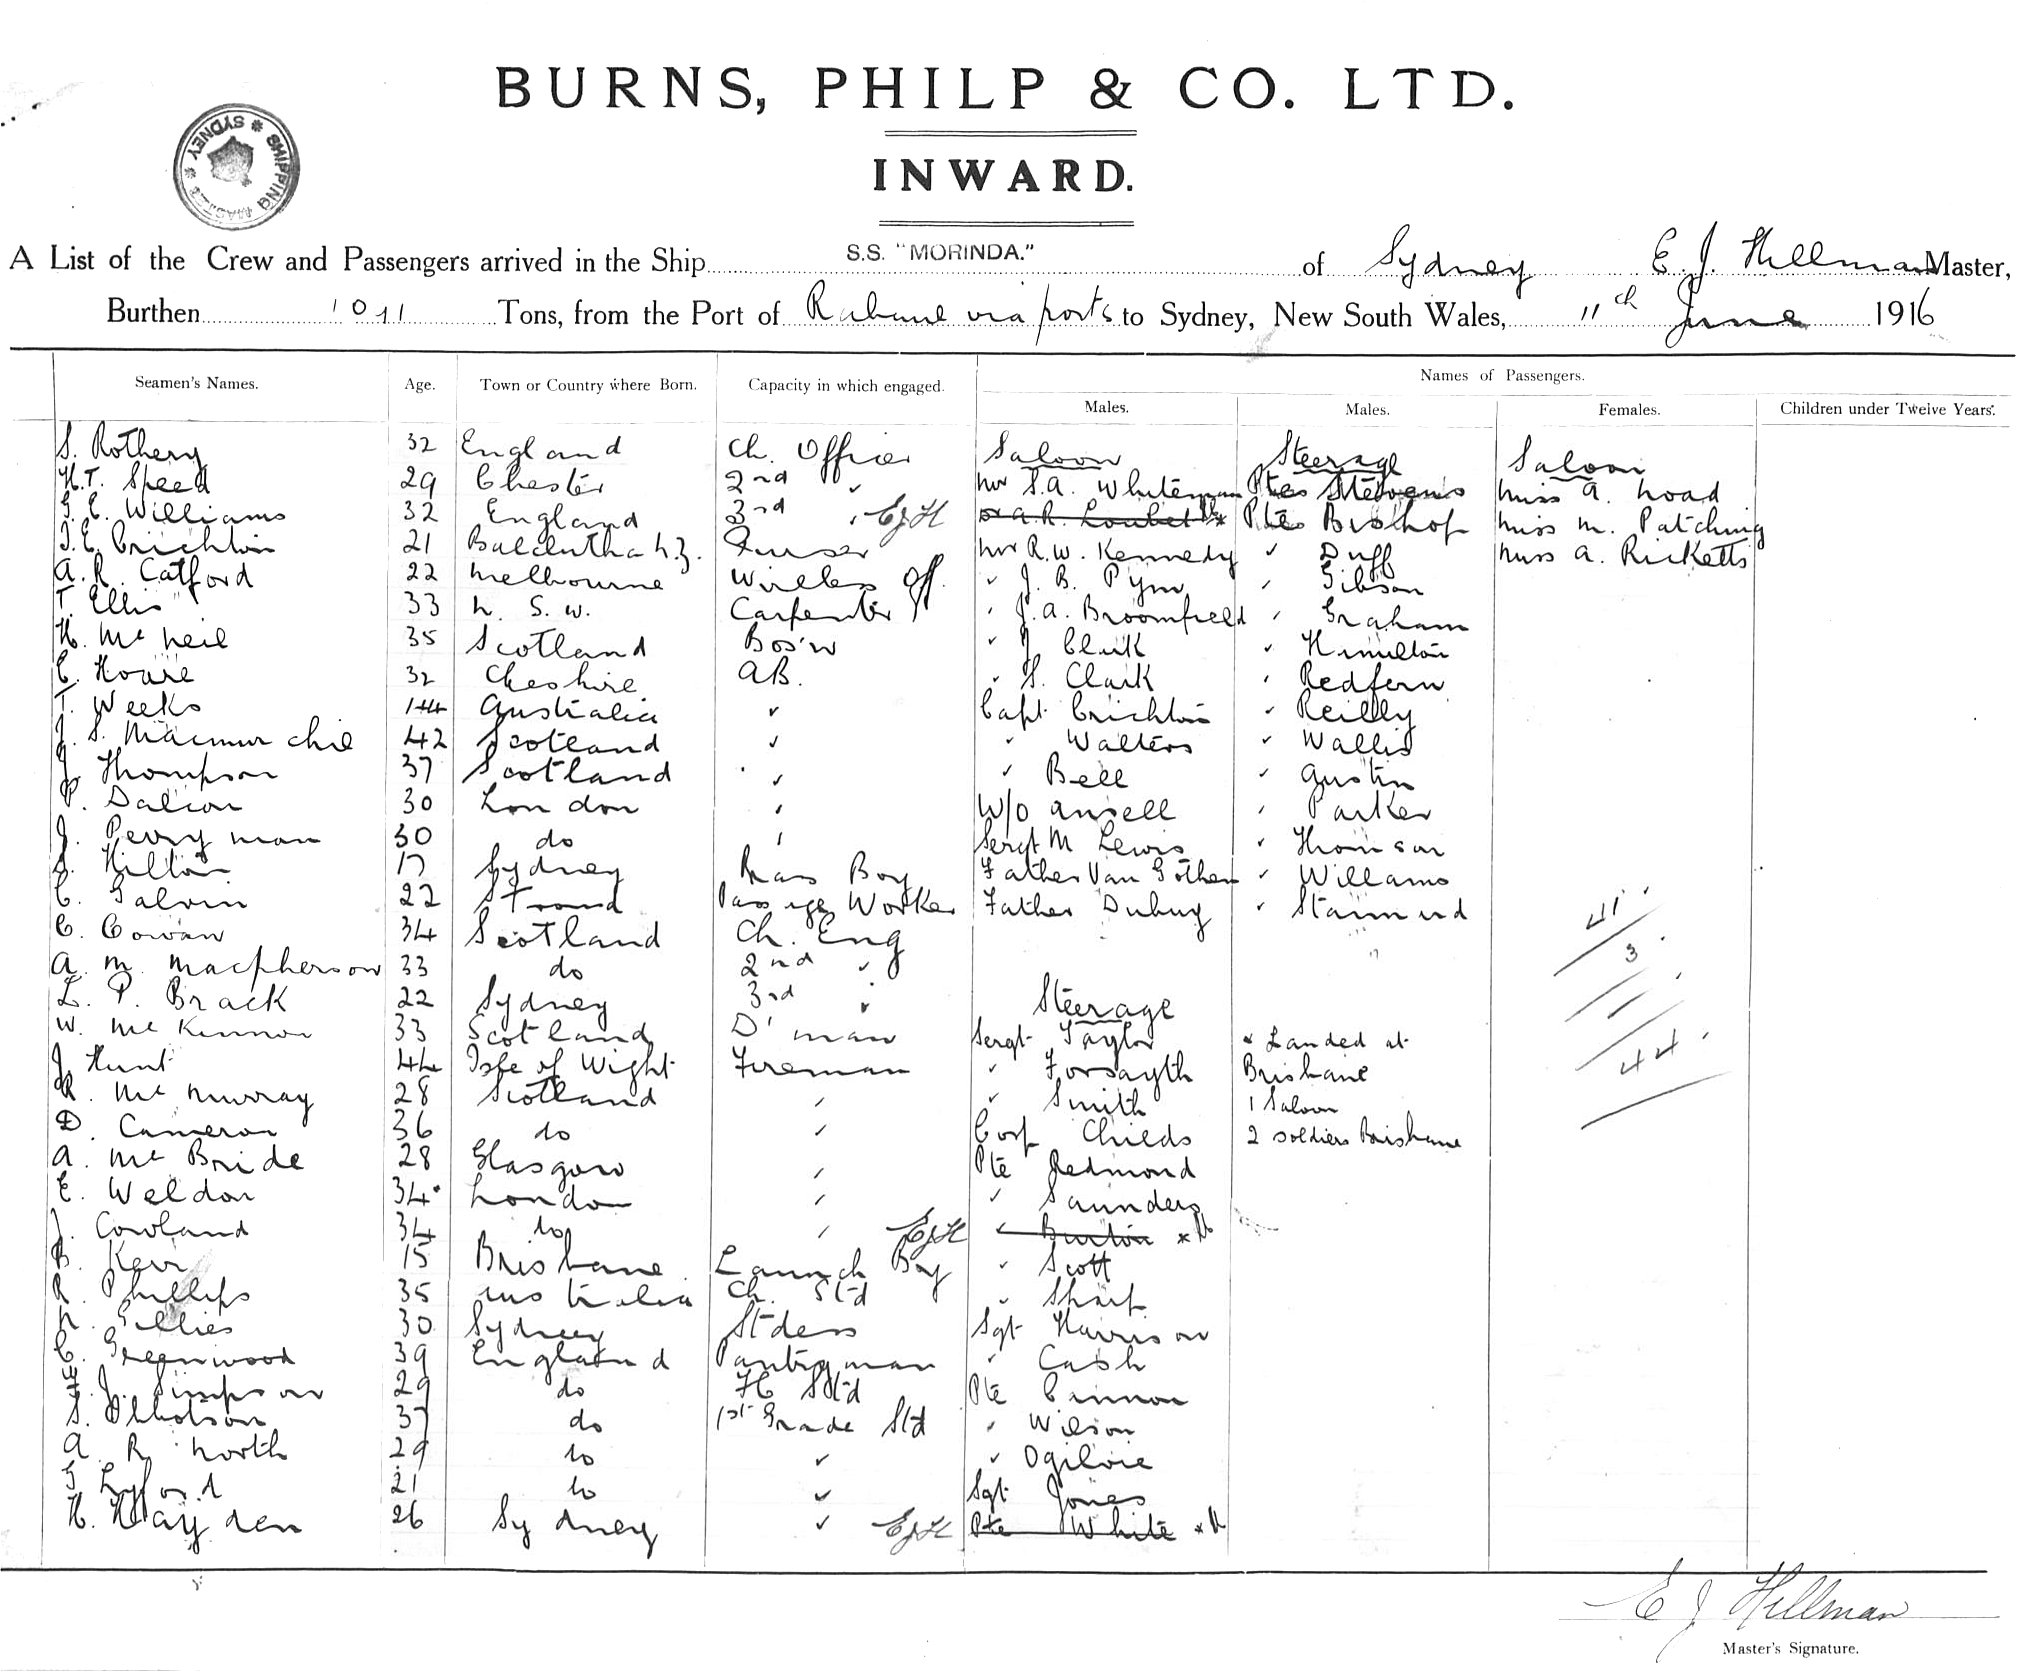 BURNS, PHILP & CO. LTD.
INWARD.
SHIPPING MASTER * SYDNEY *
A List of the Crew and Passengers arrived in the Ship S.S. "MORINDA." of Sydney E. J. Hillman Master,
Burthen 1011 Tons, from the Port of Rabaul via ports to Sydney, New South Wales, 11th June 1916
Seamen's Names. Age. Town or Country where Born. Capacity in which engaged. Names of Passengers.
Males. Males. Females. Children under Twelve Years.
S. Rothery 32 England Ch. Officer Saloon Steerage Saloon
H.T. Speed 29 Chester 2nd " Mr S.A. Whiteman Pte Stevens Miss A. Noad
G. E. Williams 32 England 3rd " EJH A.R. Loubet * Pte Bishop Miss M. Patching
J. E. Crichton 21 Balclutha N.Z. Purser Mr R.W. Kennedy " Duff Miss A. Ricketts
A. R. Catford 22 Melbourne Wireless Off. " J. B. Pym " Gibson
T. Ellis 33 N. S. W. Carpenter " J. A. Broomfield " Graham
H. McNeil 35 Scotland Bos'n " J. Clark " Hamilton
C. Hoare 32 Cheshire AB. " S. Clark " Redfern
T. Weeks 44 Australia " Capt Crichton " Reilly
J. S. 42 Scotland " " Walters " Wallis
J. Thompson 37 Scotland " " Bell " Austin
P. Dalton 30 London " W/O Ansell " Parker
J. Perryman 30 do " Sergt M Lewis " Thomson
S. Hilton 17 Sydney Mess Boy Father Van Gothem " Williams
C. Galvin 22 Stroud Passage Worker Father Dubuy "
C. Cowan 34 Scotland Ch. Eng
A. M. Macpherson 33 do 2nd "
L. P. Brack 22 Sydney 3rd " Steerage
W. McKinnon 33 Scotland D'man Sergt Taylor * Landed at
J. Hunt 44 Isle of Wight Fireman " Forsayth Brisbane
R. McMurray 28 Scotland " " Smith 1 Saloon
D. Cameron 36 do " Corp Childs 2 soldiers Brisbane
A. McBride 28 Glasgow " Pte Redmond
E. Weldon 34 London " " Saunders
J. Cowland 34 do " EJH " Burton *
B. Kerr 15 Brisbane Launch Boy " Scott
R. Phillips 35 Australia Ch. Std " Sharp
N. Gillies 30 Sydney Stdess Sgt Harrison
C. Greenwood 39 England Pantryman " Cash
J. Simpson 29 do Pte Cannon
S. Ibbotson 37 do 1st Grade Std " Wilson
A. R. North 29 do " " Ogilvie
G. Lyford 21 do " Sgt Jones
H. Hayden 26 Sydney " EJH Pte White *
41
3
44
E J Hillman
Master's Signature.